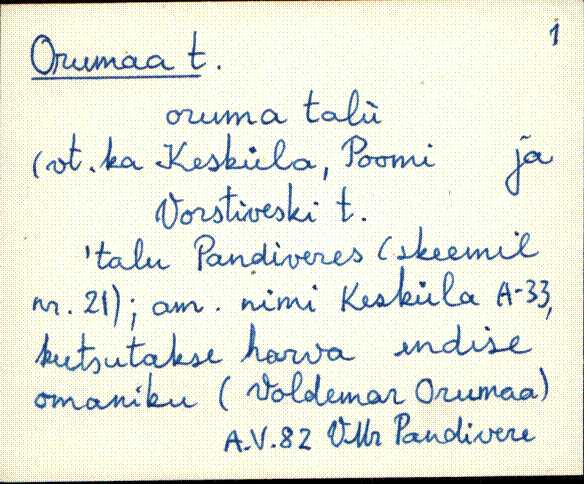 1
Orumaa t.
oruma talù
(vt. ka Kesküla, Poomi ja
Vorstiveski t.
'talu Pandiveres (skeemil
nr. 21); am. nimi Kesküla A-33,
kutsutakse harva endise
omaniku (Voldemar Orumaa)
A.V. 82 VMr Pandivere